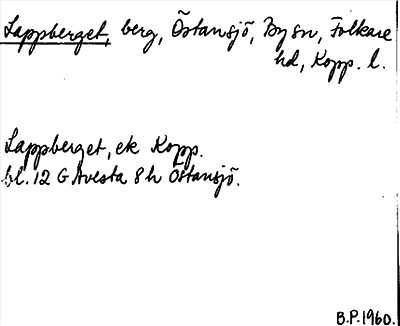 Lappberget, berg, Östansjö, By sn, Folkare
hd, Kopp. l.
Lappberget, ek Kopp.
bl. 12 G Avesta 8 h Östansjö.
B.P.1960.